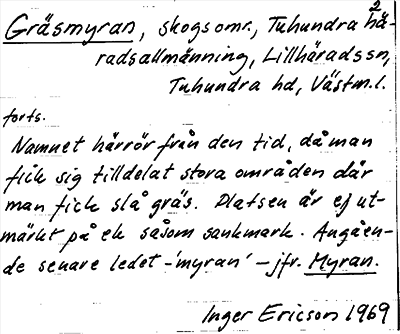 2
Gräsmyran, skogsomr., Tuhundra hä-
radsallmänning, Lillhäradssn,
Tuhundra hd, Västm.l.
forts.
Namnet härrör från den tid, då man
fick sig tilldelat stora områden där
man fick slå gräs. Platsen är ej ut-
märkt på ek såsom sankmark. Angåen-
de senare ledet -'myran' - jfr. Myran.
Inger Ericson 1969